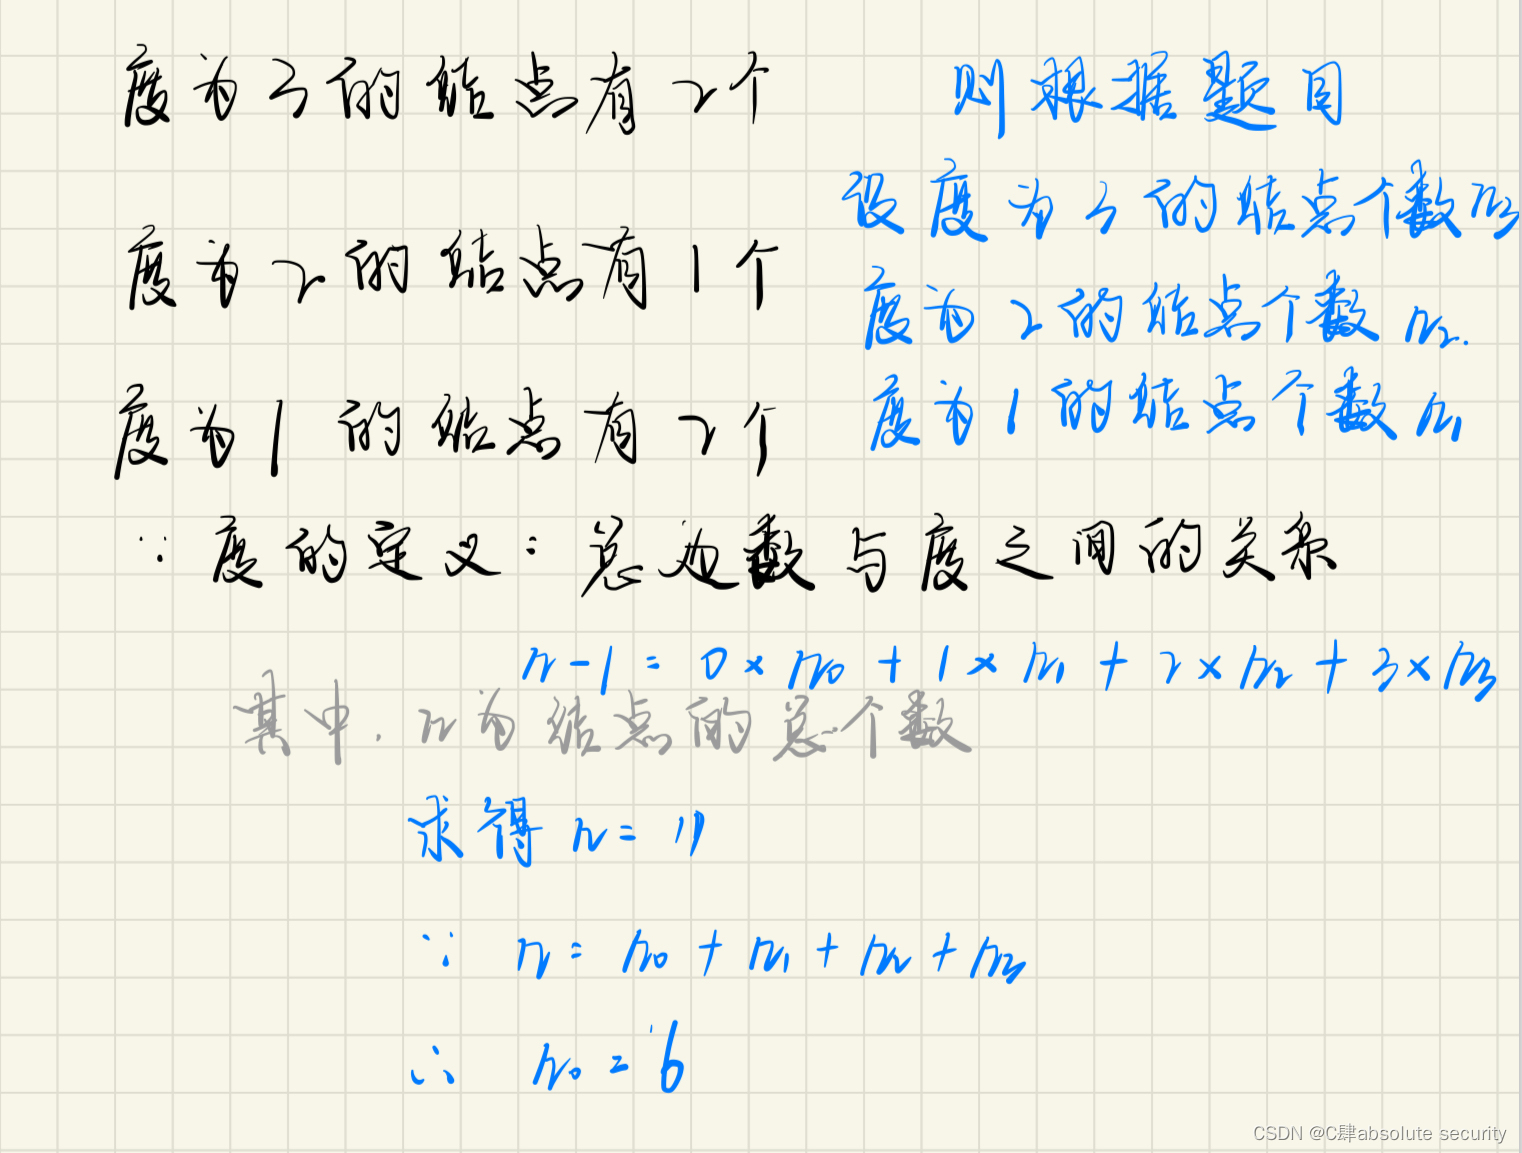 度为3的结点有2个
度为2的结点有1个
度为1的结点有2个
则根据题目
设度为3的结点个数n₃
度为2的结点个数n₂.
度为1的结点个数n₁
∵ 度的定义：总边数与度之间的关系
n-1=0×n₀+1×n₁+2×n₂+3×n₃
其中，n为结点的总个数
求得 n=11
∵ n=n₀+n₁+n₂+n₃
∴ n₀=6
CSDN @C肆absolute security